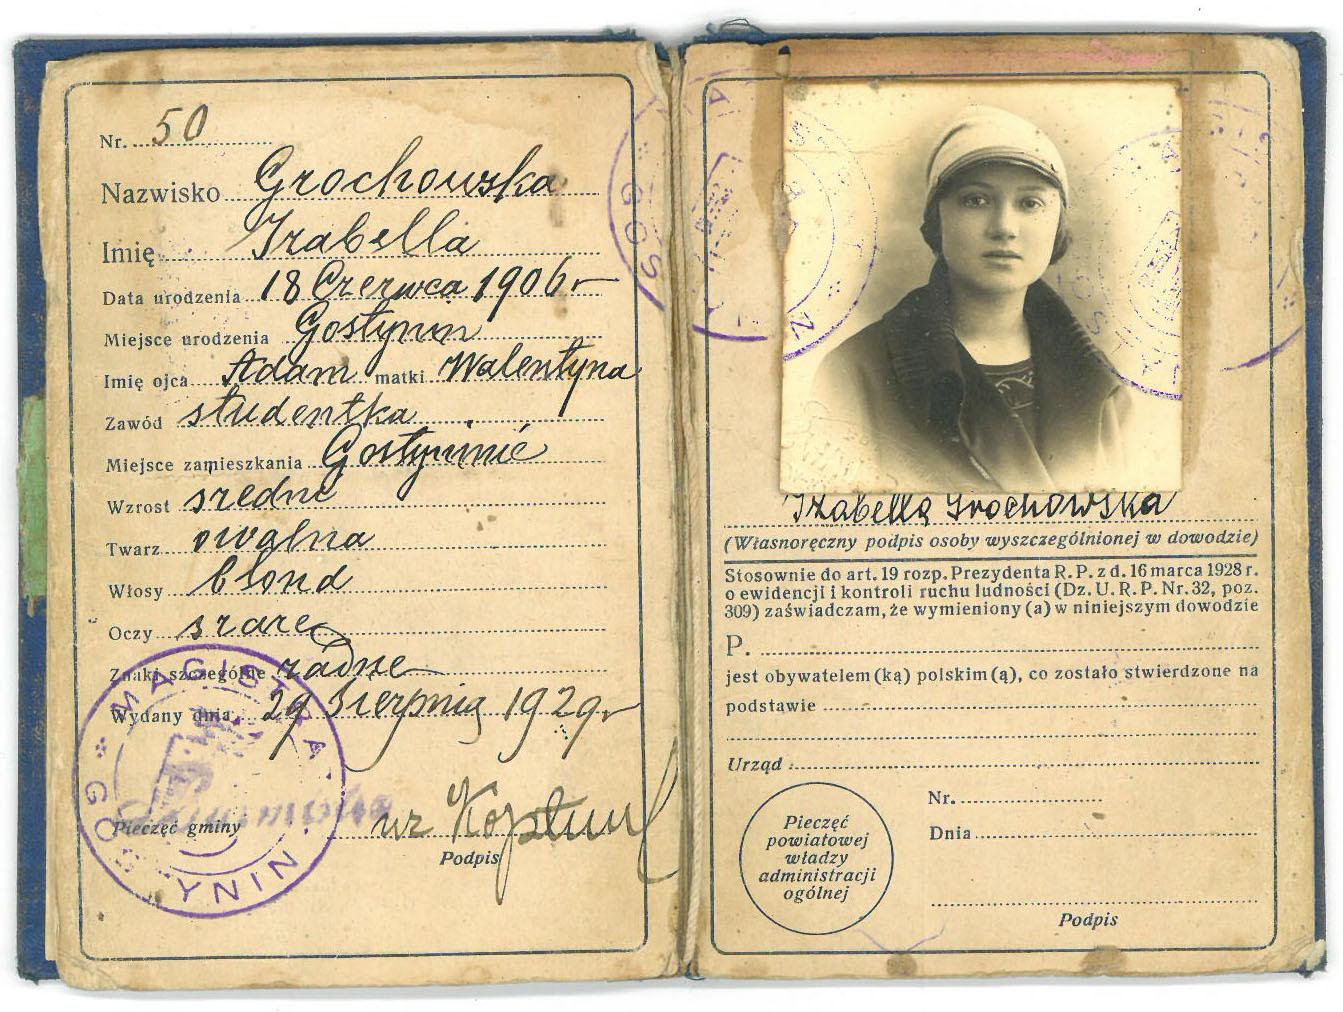 Nr. 50
Nazwisko Grochowska
Imię Izabella
Data urodzenia 18 Czerwca 1906 r
Miejsce urodzenia Gostynin
Imię ojca Adam matki Walentyna
Zawód studentka
Miejsce zamieszkania Gostyninie
Wzrost średni
Twarz owalna
Włosy blond
Oczy szare
Znaki szczególne żadne
Wydany dnia 29 Sierpnia 1929 r
MAGISTRAT
GOSTYNIN
Pieczęć gminy
wz
Podpis
Izabella Grochowska
(Własnoręczny podpis osoby wyszczególnionej w dowodzie)
Stosownie do art. 19 rozp. Prezydenta R. P. z d. 16 marca 1928 r.
o ewidencji i kontroli ruchu ludności (Dz. U. R. P. Nr. 32, poz.
309) zaświadczam, że wymieniony (a) w niniejszym dowodzie
P.
jest obywatelem (ką) polskim (ą), co zostało stwierdzone na
podstawie
Urząd
Pieczęć
powiatowej
władzy
administracji
ogólnej
Nr.
Dnia
Podpis